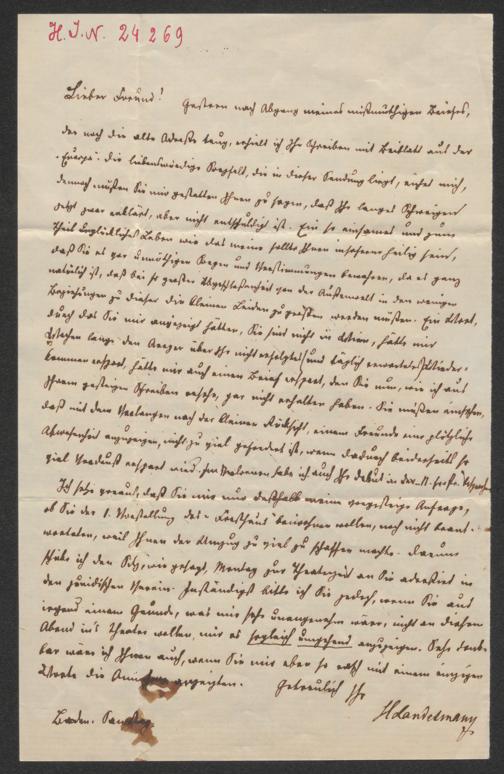 H. I. N. 24269
Lieber Freund! Gestern nach Abgang meines mißmüthigen Briefes,
der noch die alte Adresse trug, erhielt ich Ihr Schreiben mit Beiblatt aus der
"Europa". Die liebenswürdige Sorgfalt, die in dieser Sendung liegt, rührt mich,
dennoch müßen Sie mir gestatten Ihnen zu sagen, daß Ihr langes Schweigen
jetzt zwar erklärt, aber nicht entschuldigt ist. Ein so einsames und zum
Theil Leben wie das meine sollte Ihnen insoferne heilig sein,
daß Sie es vor unnöthigen Sorgen und Verstimmungen bewahren, da es ganz
natürlich ist, daß bei so großer Abgeschlossenheit von der Außenwelt in den wenigen
Beziehungen zu dieser die kleinen Leiden zu großen werden müßen. Ein Wort,
durch das Sie mir angezeigt hätten, Sie sind nicht in Wien, hätte mir
Wochen lange den Aerger über Ihr nicht erfolgtes (und täglich erwartetes) Wieder-
kommen erspart, hätte mir auch einen Brief erspart, den Sie nun, wie ich aus
Ihrem gestrigen Schreiben ersehe, gar nicht erhalten haben. Sie müßen einsehen,
daß mit dem Verlangen nach der kleinen Rücksicht, einem Freunde eine plötzliche
Abwesenheit anzuzeigen, nicht zu viel gefordert ist, wenn dadurch beiderseits so
viel Verdruß erspart wird. habe ich auch Ihr Debut in der N. fr. Pr.
Ich setze voraus, daß Sie mir nur deßhalb meine vorgestrige Anfrage,
ob Sie der 1. Vorstellung des "Forsthaus" beiwohnen wollen, noch nicht beant-
worteten, weil Ihnen der Umzug zu viel zu schaffen machte. Darum
schicke ich den Sitz, wie gesagt, Montag zur Theaterzeit an Sie adressirt in
den juridischen Verein. Inständigst bitte ich Sie jedoch, wenn Sie aus
irgend einem Grunde, was mir sehr unangenehm wäre, nicht an diesem
Abend in's Theater wollen, mir es sogleich umgehend anzuzeigen. Sehr dank-
bar wäre ich Ihnen auch, wenn Sie mir eben so rasch mit einem einzigen
Worte die Annahme anzeigten. Getreulich Ihr
HLandesmann
Baden. Samstag.